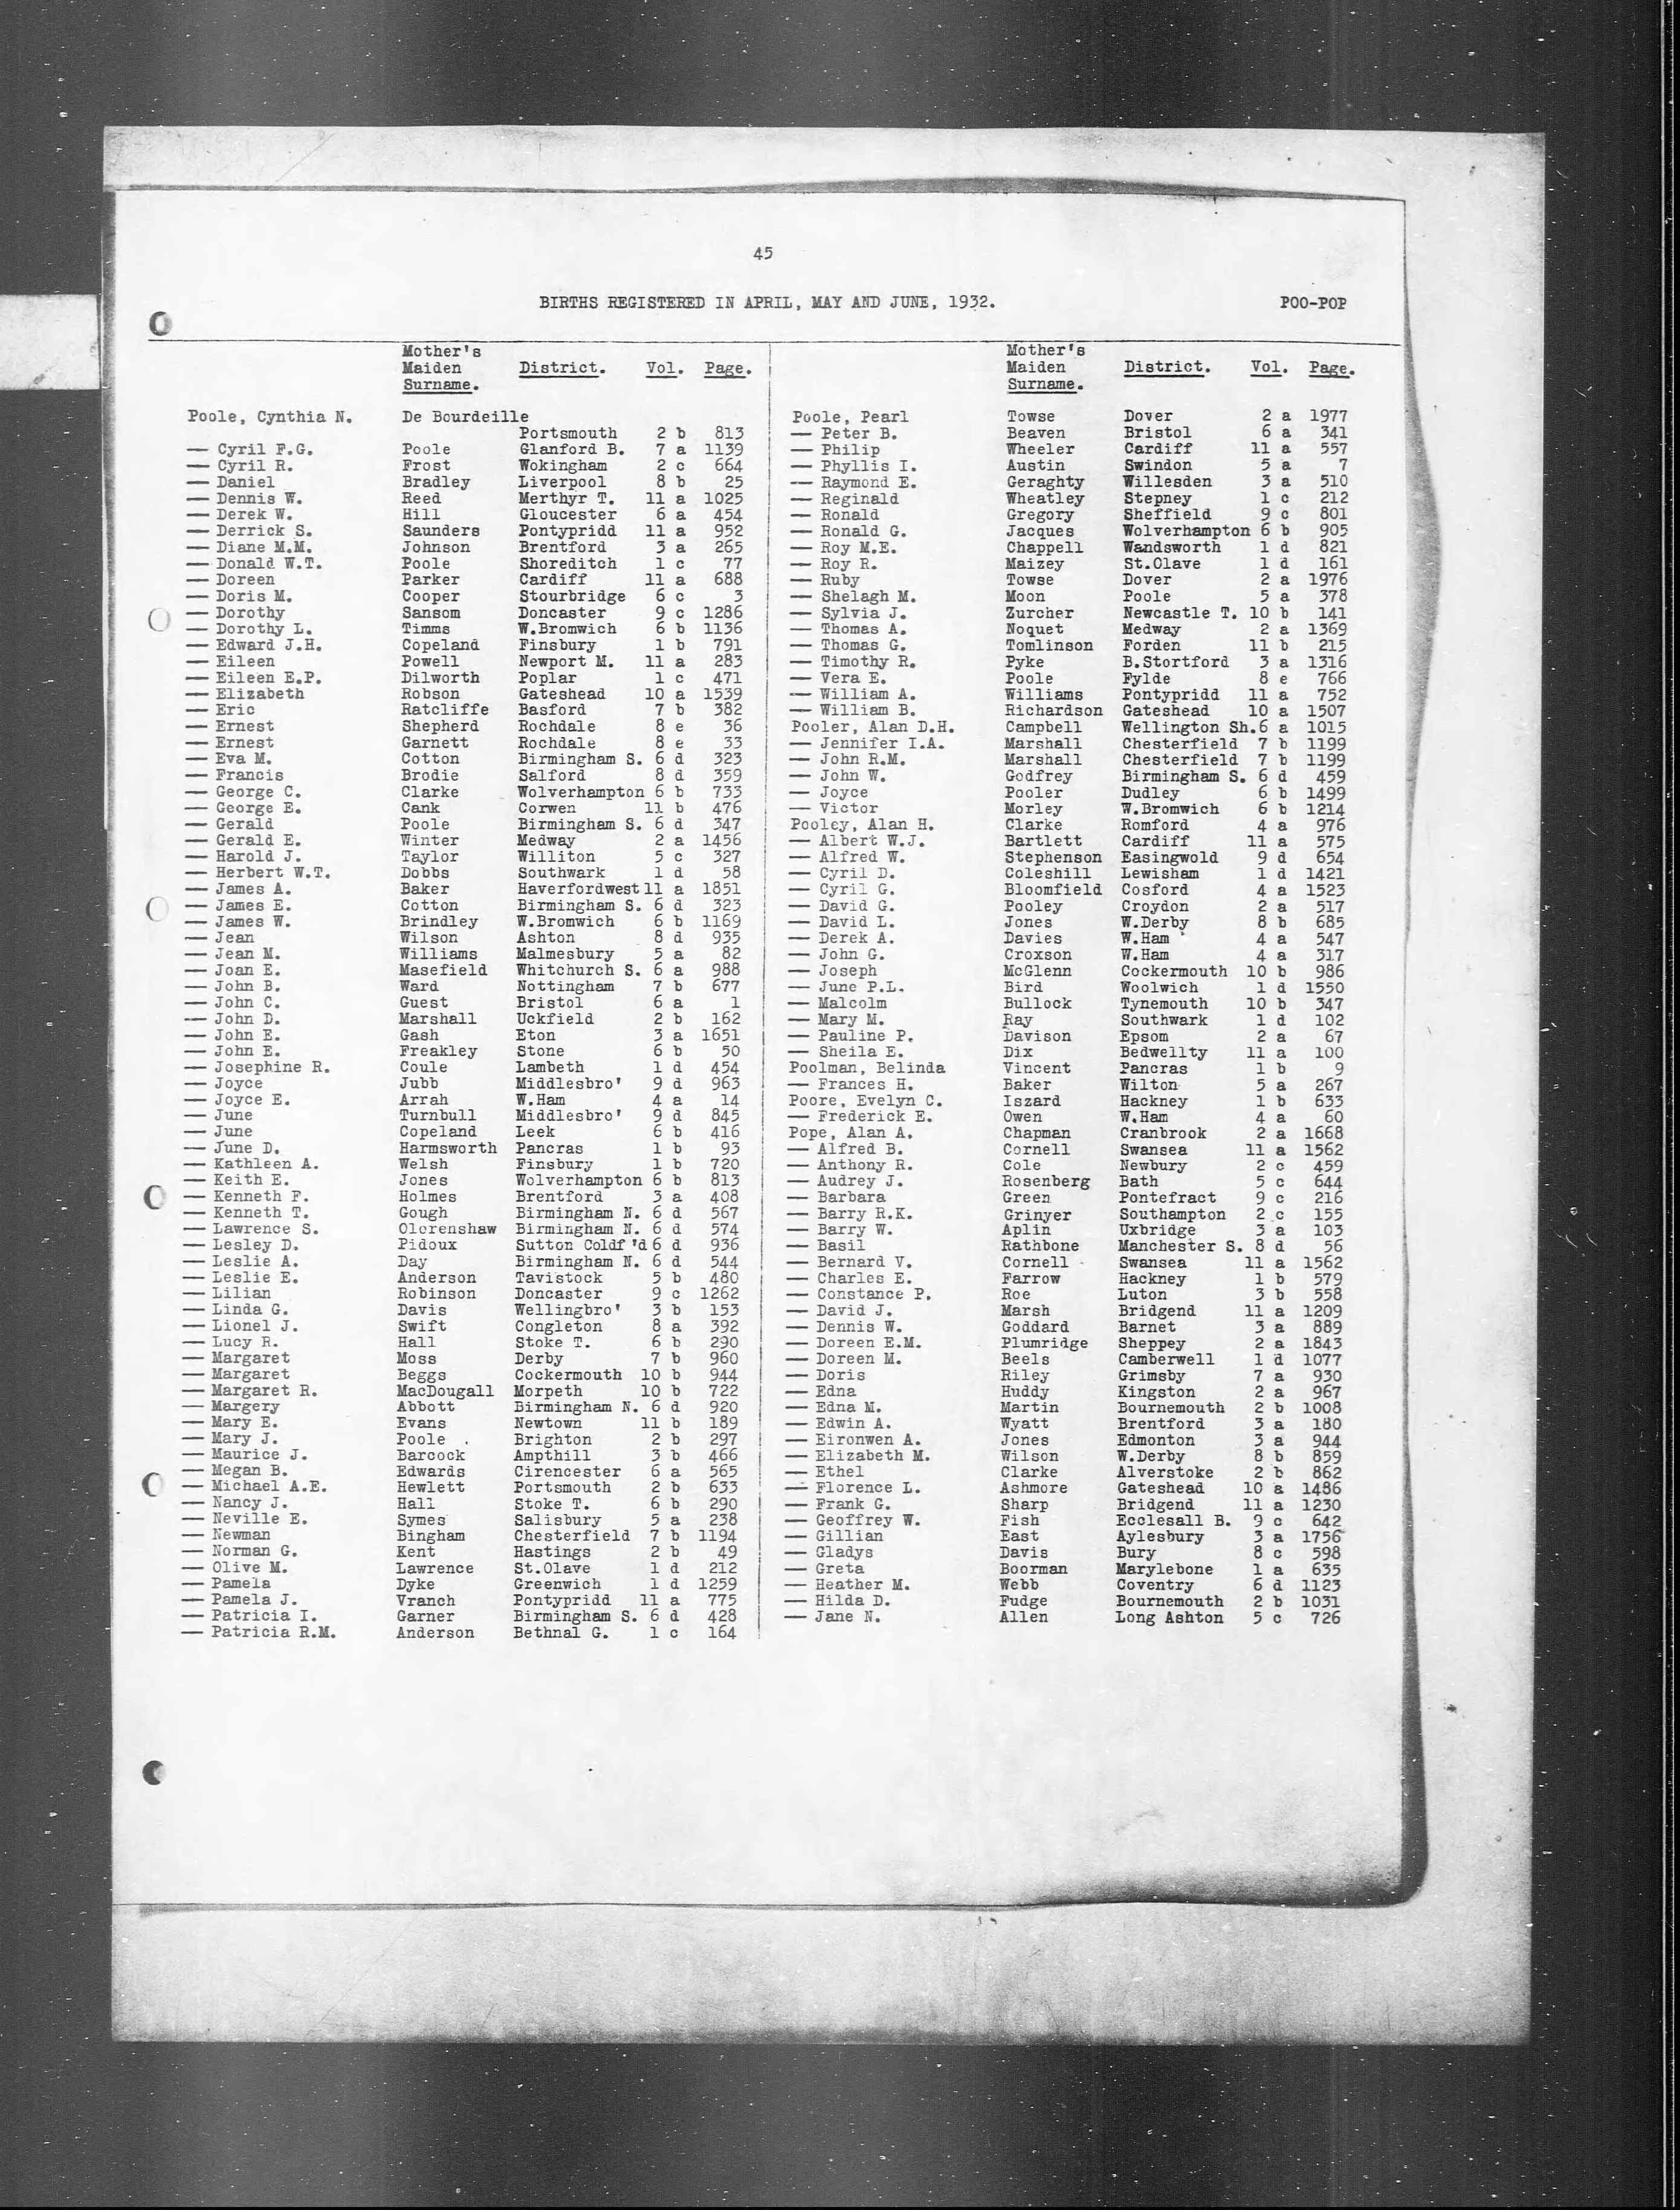 45
BIRTHS REGISTERED IN APRIL, MAY AND JUNE, 1932. POO-POP
Mother's
Maiden District. Vol. Page.
Surname.
Poole, Cynthia N. De Bourdeille
Portsmouth 2 b 813
— Cyril F.G. Poole Glanford B. 7 a 1139
— Cyril R. Frost Wokingham 2 c 664
— Daniel Bradley Liverpool 8 b 25
— Dennis W. Reed Merthyr T. 11 a 1025
— Derek W. Hill Gloucester 6 a 454
— Derrick S. Saunders Pontypridd 11 a 952
— Diane M.M. Johnson Brentford 3 a 265
— Donald W.T. Poole Shoreditch 1 c 77
— Doreen Parker Cardiff 11 a 688
— Doris M. Cooper Stourbridge 6 c 3
— Dorothy Sansom Doncaster 9 c 1286
— Dorothy L. Timms W.Bromwich 6 b 1136
— Edward J.H. Copeland Finsbury 1 b 791
— Eileen Powell Newport M. 11 a 283
— Eileen E.P. Dilworth Poplar 1 c 471
— Elizabeth Robson Gateshead 10 a 1539
— Eric Ratcliffe Basford 7 b 382
— Ernest Shepherd Rochdale 8 e 36
— Ernest Garnett Rochdale 8 e 33
— Eva M. Cotton Birmingham S. 6 d 323
— Francis Brodie Salford 8 d 359
— George C. Clarke Wolverhampton 6 b 733
— George E. Cank Corwen 11 b 476
— Gerald Poole Birmingham S. 6 d 347
— Gerald E. Winter Medway 2 a 1456
— Harold J. Taylor Williton 5 c 327
— Herbert W.T. Dobbs Southwark 1 d 58
— James A. Baker Haverfordwest 11 a 1851
— James E. Cotton Birmingham S. 6 d 323
— James W. Brindley W.Bromwich 6 b 1169
— Jean Wilson Ashton 8 d 935
— Jean M. Williams Malmesbury 5 a 82
— Joan E. Masefield Whitchurch S. 6 a 988
— John B. Ward Nottingham 7 b 677
— John C. Guest Bristol 6 a 1
— John D. Marshall Uckfield 2 b 162
— John E. Gash Eton 3 a 1651
— John E. Freakley Stone 6 b 50
— Josephine R. Coule Lambeth 1 d 454
— Joyce Jubb Middlesbro' 9 d 963
— Joyce E. Arrah W.Ham 4 a 14
— June Turnbull Middlesbro' 9 d 845
— June Copeland Leek 6 b 416
— June D. Harmsworth Pancras 1 b 93
— Kathleen A. Welsh Finsbury 1 b 720
— Keith E. Jones Wolverhampton 6 b 813
— Kenneth F. Holmes Brentford 3 a 408
— Kenneth T. Gough Birmingham N. 6 d 567
— Lawrence S. Olorenshaw Birmingham N. 6 d 574
— Lesley D. Pidoux Sutton Coldf'd 6 d 936
— Leslie A. Day Birmingham N. 6 d 544
— Leslie E. Anderson Tavistock 5 b 480
— Lilian Robinson Doncaster 9 c 1262
— Linda G. Davis Wellingbro' 3 b 153
— Lionel J. Swift Congleton 8 a 392
— Lucy R. Hall Stoke T. 6 b 290
— Margaret Moss Derby 7 b 960
— Margaret Beggs Cockermouth 10 b 944
— Margaret R. MacDougall Morpeth 10 b 722
— Margery Abbott Birmingham N. 6 d 920
— Mary E. Evans Newtown 11 b 189
— Mary J. Poole Brighton 2 b 297
— Maurice J. Barcock Ampthill 3 b 466
— Megan B. Edwards Cirencester 6 a 565
— Michael A.E. Hewlett Portsmouth 2 b 633
— Nancy J. Hall Stoke T. 6 b 290
— Neville E. Symes Salisbury 5 a 238
— Newman Bingham Chesterfield 7 b 1194
— Norman G. Kent Hastings 2 b 49
— Olive M. Lawrence St.Olave 1 d 212
— Pamela Dyke Greenwich 1 d 1259
— Pamela J. Vranch Pontypridd 11 a 775
— Patricia I. Garner Birmingham S. 6 d 428
— Patricia R.M. Anderson Bethnal G. 1 c 164
Mother's
Maiden District. Vol. Page.
Surname.
Poole, Pearl Towse Dover 2 a 1977
— Peter B. Beaven Bristol 6 a 341
— Philip Wheeler Cardiff 11 a 557
— Phyllis I. Austin Swindon 5 a 7
— Raymond E. Geraghty Willesden 3 a 510
— Reginald Wheatley Stepney 1 c 212
— Ronald Gregory Sheffield 9 c 801
— Ronald G. Jacques Wolverhampton 6 b 905
— Roy M.E. Chappell Wandsworth 1 d 821
— Roy R. Maizey St.Olave 1 d 161
— Ruby Towse Dover 2 a 1976
— Shelagh M. Moon Poole 5 a 378
— Sylvia J. Zurcher Newcastle T. 10 b 141
— Thomas A. Noquet Medway 2 a 1369
— Thomas G. Tomlinson Forden 11 b 215
— Timothy R. Pyke B.Stortford 3 a 1316
— Vera E. Poole Fylde 8 e 766
— William A. Williams Pontypridd 11 a 752
— William B. Richardson Gateshead 10 a 1507
Pooler, Alan D.H. Campbell Wellington Sh. 6 a 1015
— Jennifer I.A. Marshall Chesterfield 7 b 1199
— John R.M. Marshall Chesterfield 7 b 1199
— John W. Godfrey Birmingham S. 6 d 459
— Joyce Pooler Dudley 6 b 1499
— Victor Morley W.Bromwich 6 b 1214
Pooley, Alan H. Clarke Romford 4 a 976
— Albert W.J. Bartlett Cardiff 11 a 575
— Alfred W. Stephenson Easingwold 9 d 654
— Cyril D. Coleshill Lewisham 1 d 1421
— Cyril G. Bloomfield Cosford 4 a 1523
— David G. Pooley Croydon 2 a 517
— David L. Jones W.Derby 8 b 685
— Derek A. Davies W.Ham 4 a 547
— John G. Croxson W.Ham 4 a 317
— Joseph McGlenn Cockermouth 10 b 986
— June P.L. Bird Woolwich 1 d 1550
— Malcolm Bullock Tynemouth 10 b 347
— Mary M. Ray Southwark 1 d 102
— Pauline P. Davison Epsom 2 a 67
— Sheila E. Dix Bedwellty 11 a 100
Poolman, Belinda Vincent Pancras 1 b 9
— Frances H. Baker Wilton 5 a 267
Poore, Evelyn C. Iszard Hackney 1 b 633
— Frederick E. Owen W.Ham 4 a 60
Pope, Alan A. Chapman Cranbrook 2 a 1668
— Alfred B. Cornell Swansea 11 a 1562
— Anthony R. Cole Newbury 2 c 459
— Audrey J. Rosenberg Bath 5 c 644
— Barbara Green Pontefract 9 c 216
— Barry R.K. Grinyer Southampton 2 c 155
— Barry W. Aplin Uxbridge 3 a 103
— Basil Rathbone Manchester S. 8 d 56
— Bernard V. Cornell Swansea 11 a 1562
— Charles E. Farrow Hackney 1 b 579
— Constance P. Roe Luton 3 b 558
— David J. Marsh Bridgend 11 a 1209
— Dennis W. Goddard Barnet 3 a 889
— Doreen E.M. Plumridge Sheppey 2 a 1843
— Doreen M. Beels Camberwell 1 d 1077
— Doris Riley Grimsby 7 a 930
— Edna Huddy Kingston 2 a 967
— Edna M. Martin Bournemouth 2 b 1008
— Edwin A. Wyatt Brentford 3 a 180
— Eironwen A. Jones Edmonton 3 a 944
— Elizabeth M. Wilson W.Derby 8 b 859
— Ethel Clarke Alverstoke 2 b 862
— Florence L. Ashmore Gateshead 10 a 1486
— Frank G. Sharp Bridgend 11 a 1230
— Geoffrey W. Fish Ecclesall B. 9 c 642
— Gillian East Aylesbury 3 a 1756
— Gladys Davis Bury 8 c 598
— Greta Boorman Marylebone 1 a 635
— Heather M. Webb Coventry 6 d 1123
— Hilda D. Fudge Bournemouth 2 b 1031
— Jane N. Allen Long Ashton 5 c 726